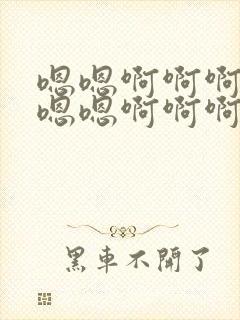 嗯嗯啊啊啊
嗯嗯啊啊啊
黑車不開了